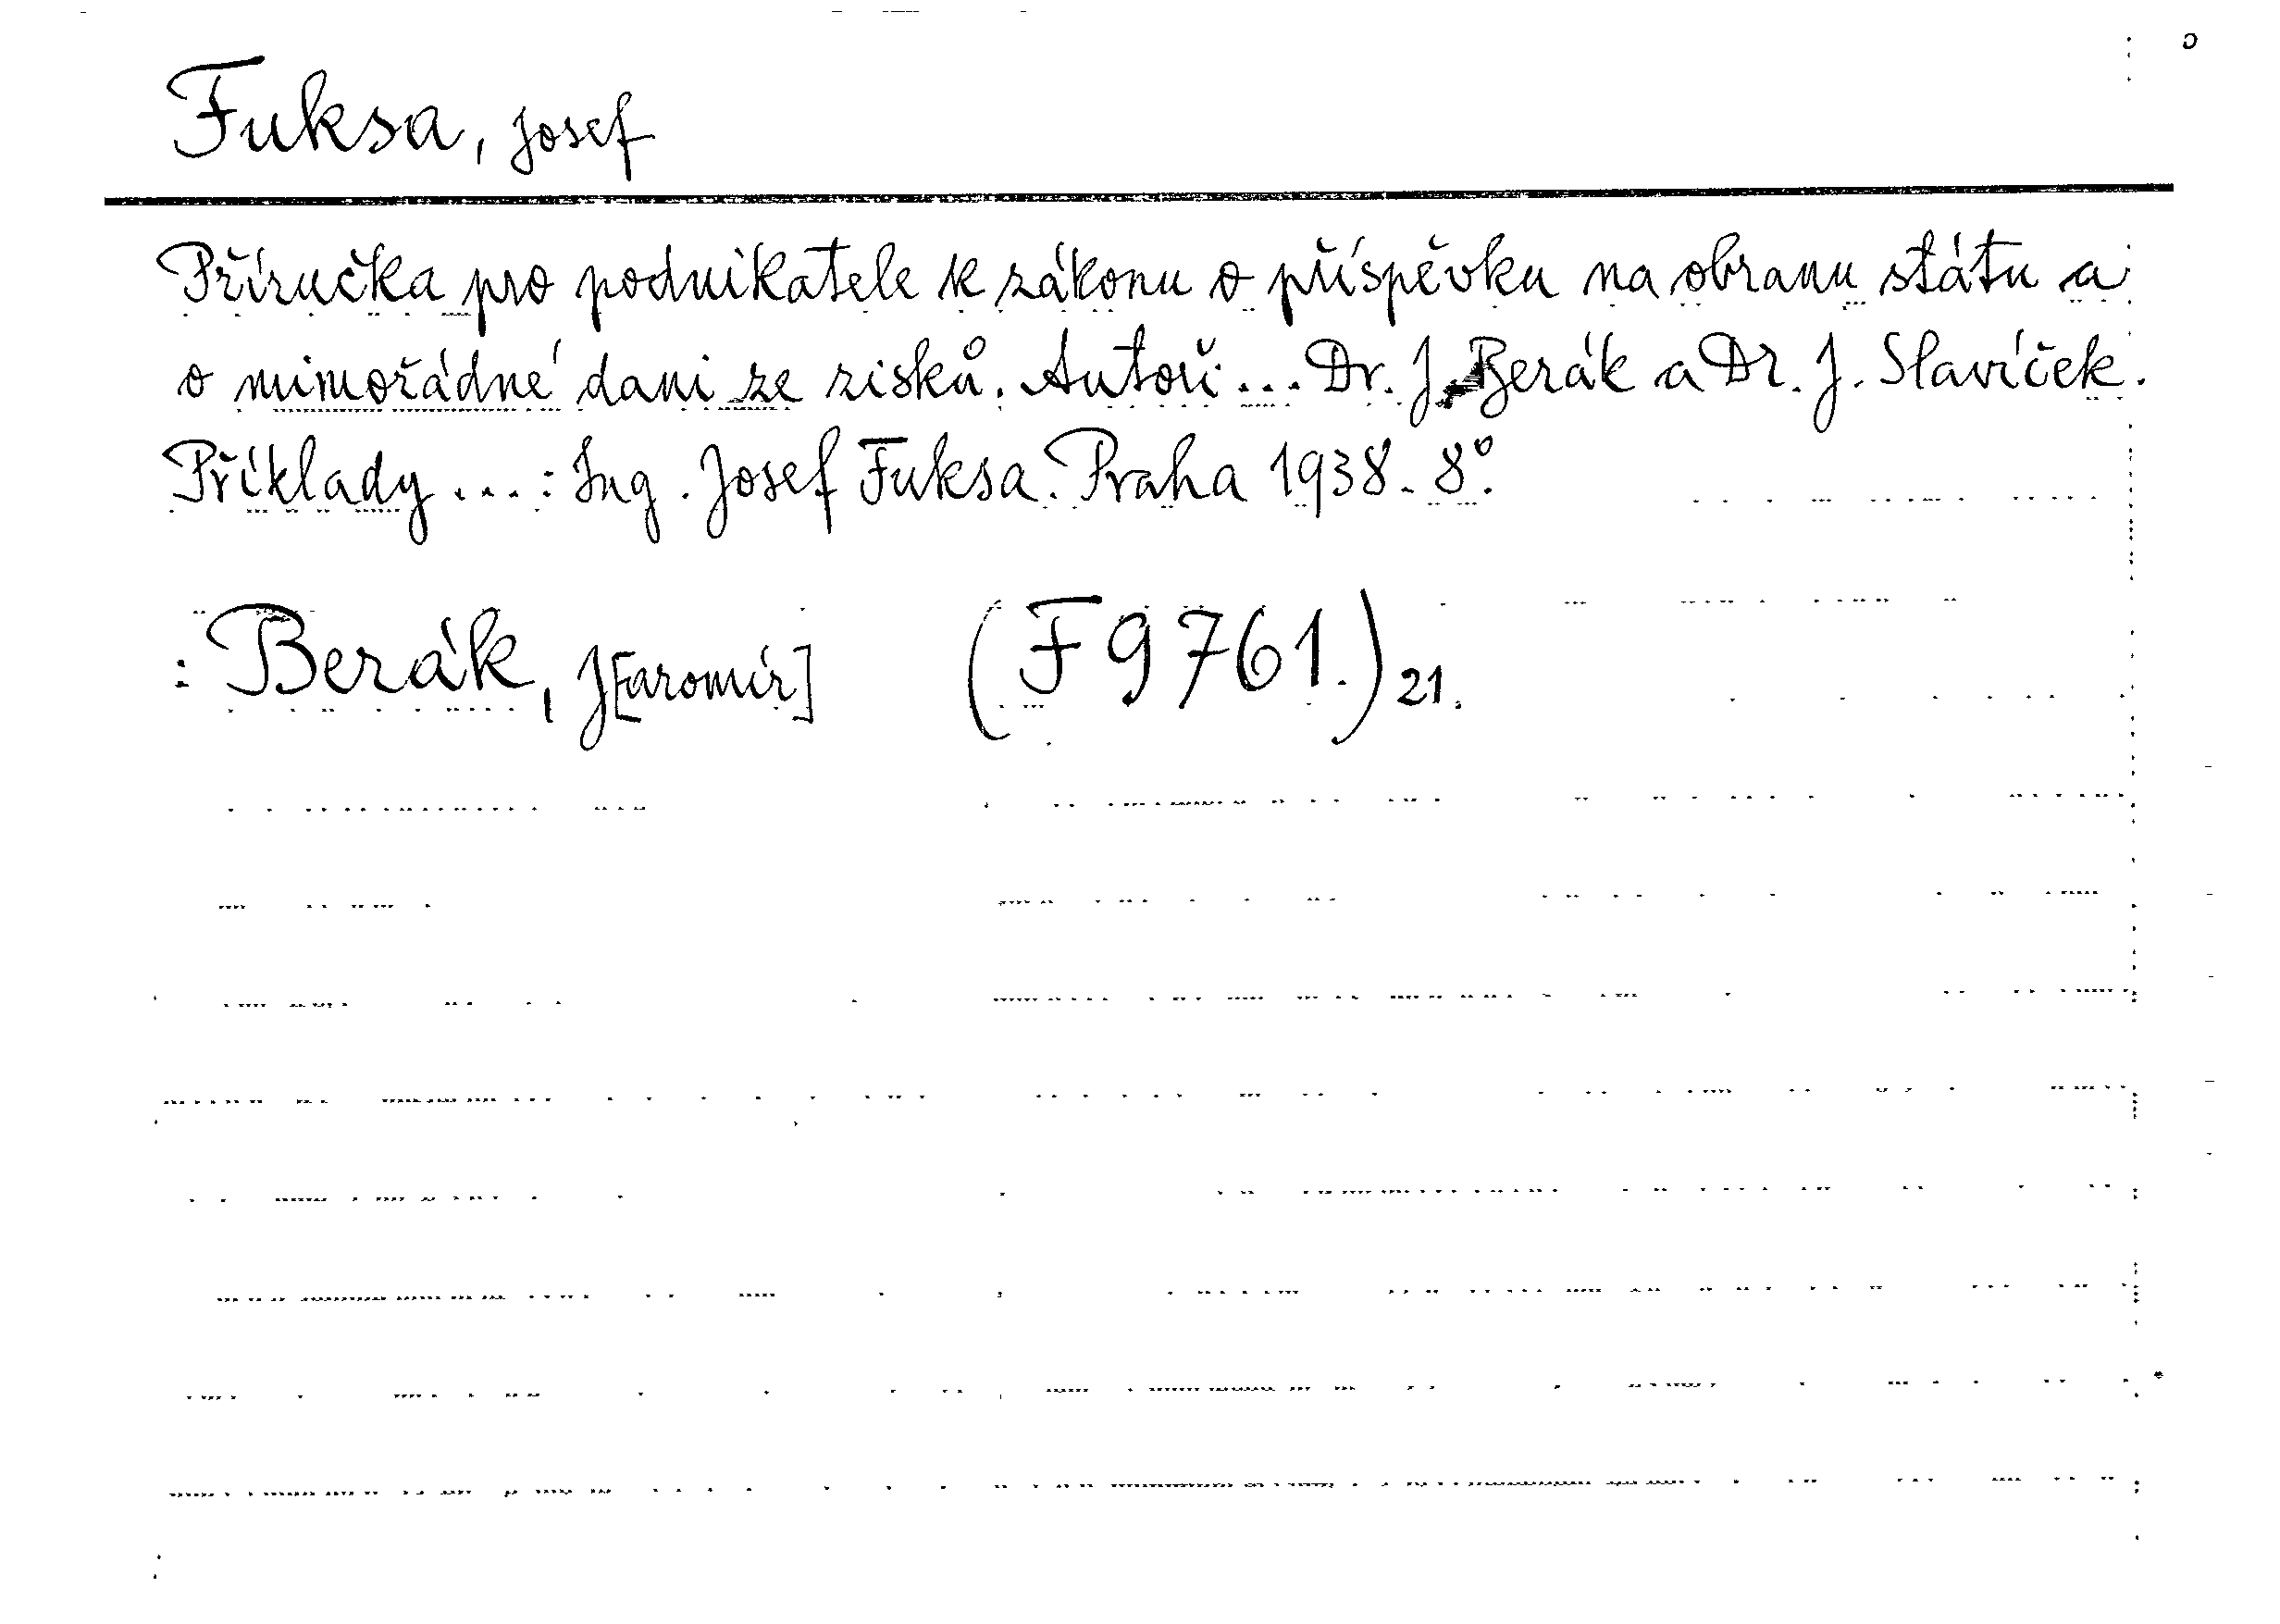 Fuksa, Josef
Příručka pro podnikatele k zákonu o příspěvku na obranu státu a
o mimořádné dani ze zisků. Autoři ... Dr. J. Berák a Dr. J. Slavíček.
Příklady ...: Ing. Josef Fuksa. Praha 1938. 8°.
: Berák, J[aromír] (F 9761.) 21.